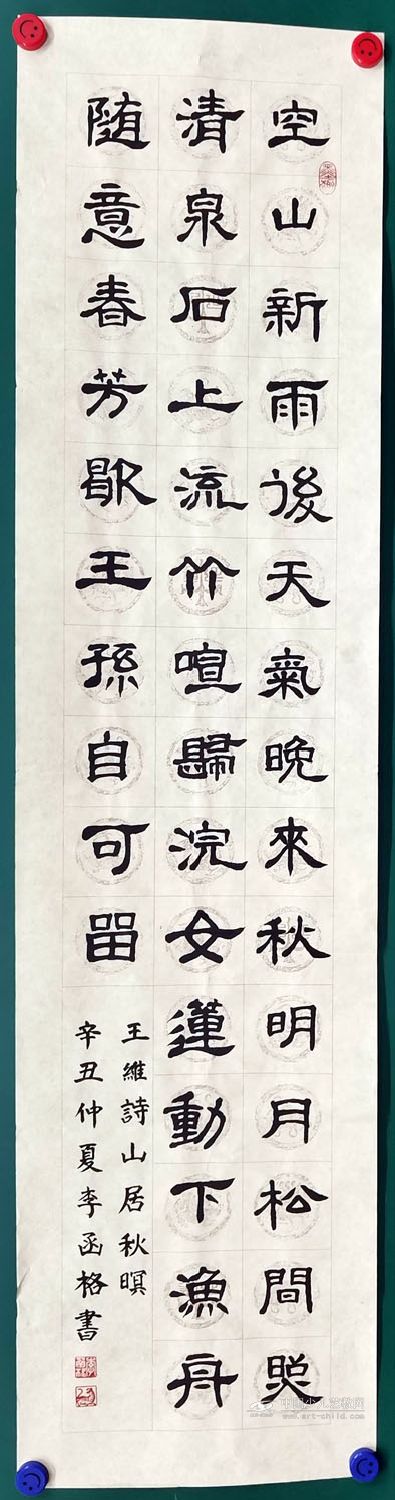 空山新雨後天氣晚來秋明月松間照
清泉石上流竹喧歸浣女蓮動下漁舟
随意春芳歇王孫自可留
王維詩山居秋暝
辛丑仲夏李函格書
中国少儿艺教网
www.art-child.com